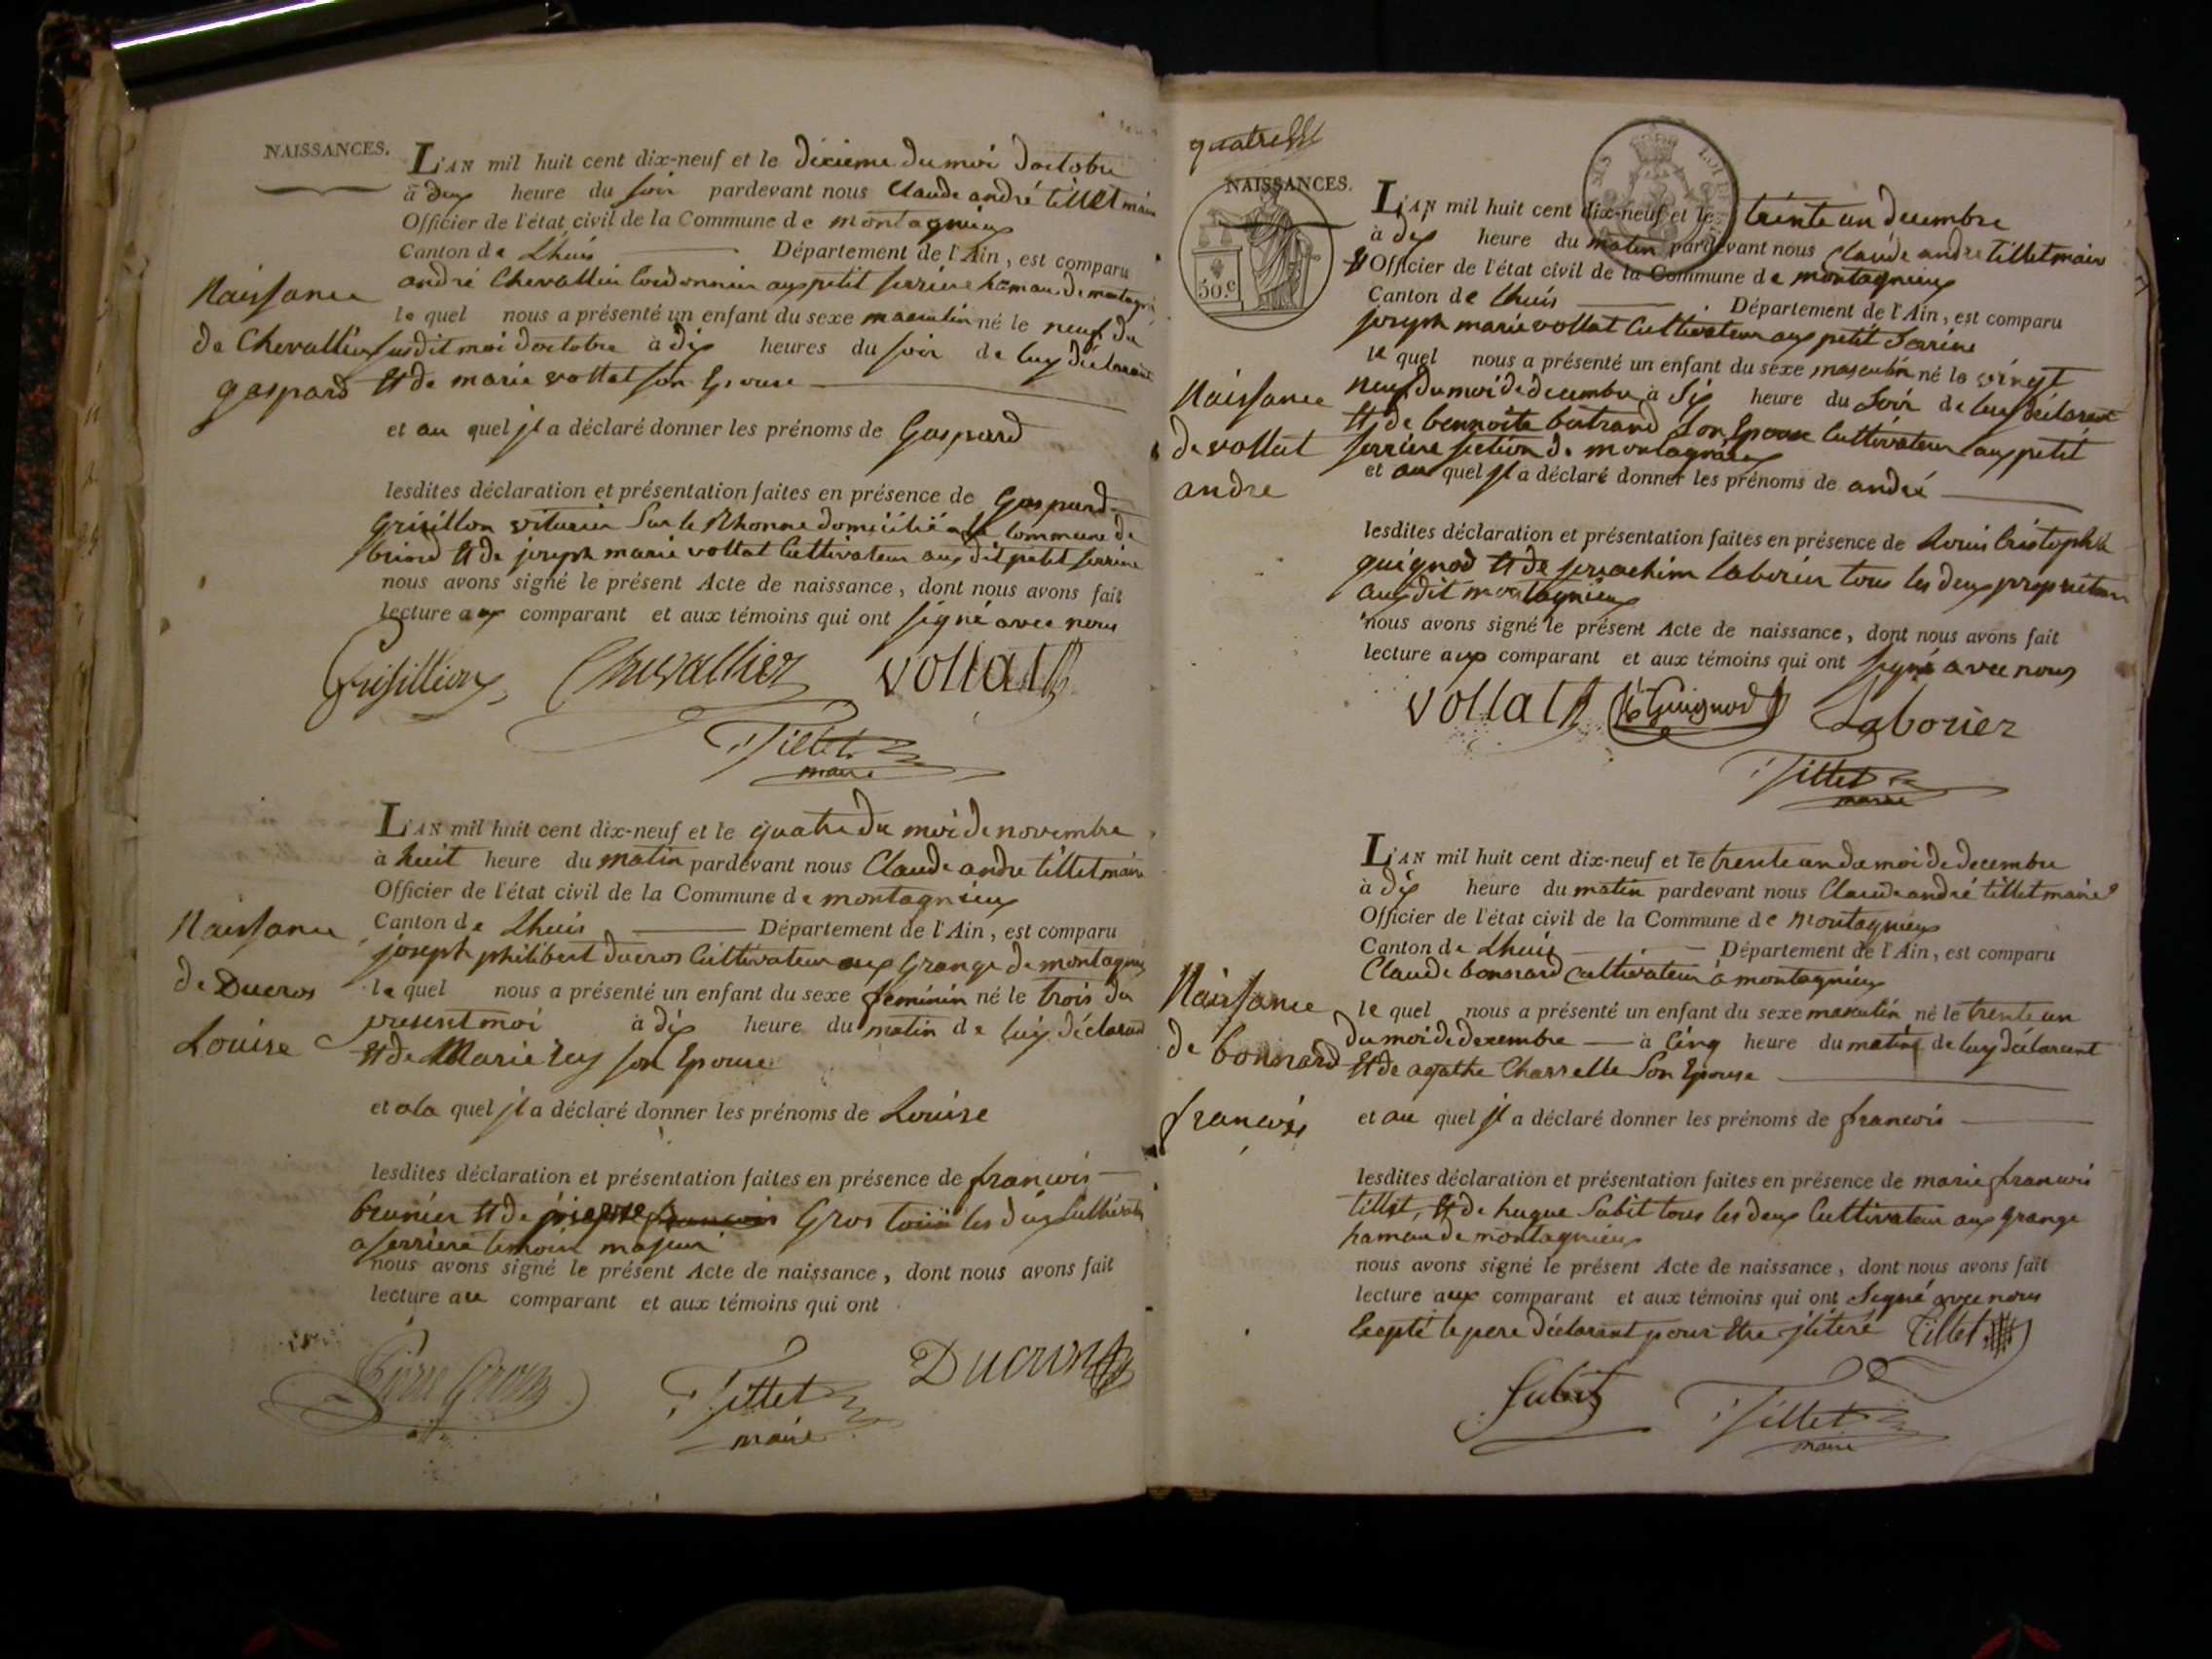 NAISSANCES.
L'AN mil huit cent dix-neuf et le dixieme du moi doctobre
à deux heure du soir pardevant nous Claude andré tillet maire
Officier de l'état civil de la Commune de montagnieux
Canton de Lhuis Département de l'Ain, est comparu
andré Chevallier Cordonnier aux petit serriere hamau de montagni
le quel nous a présenté un enfant du sexe masculin né le neuf du
susdit moi doctobre à dix heures du soir de luy déclarant
et de marie vollat son Epouse
et au quel jl a déclaré donner les prénoms de Gaspard
lesdites déclaration et présentation faites en présence de Gaspard
Grisillon voiturier Sur le Rhonne domicilié a la commune de
briord et de joseph marie vollat Cultivateur aux dit petit serriere
nous avons signé le présent Acte de naissance, dont nous avons fait
lecture aux comparant et aux témoins qui ont signé avec nous
Naissance
de Chevallier
gaspard
Grisillion Chevallier vollat
Tillet
maire
L'AN mil huit cent dix-neuf et le quatre du moi de novembre
à huit heure du matin pardevant nous Claude andre tillet maire
Officier de l'état civil de la Commune de montagnieux
Canton de Lhuis Département de l'Ain, est comparu
joseph philibert ducros Cultivateur aux Grange de montagnieux
le quel nous a présenté un enfant du sexe feminin né le trois du
present moi à dix heure du matin de luy déclarant
et de Marie Rey son Epouse
et a la quel jl a déclaré donner les prénoms de Louise
lesdites déclaration et présentation faites en présence de francois
brunier et de pierre Gros tous les deux Cultivateur
a serriere temoin majeur
nous avons signé le présent Acte de naissance, dont nous avons fait
lecture au comparant et aux témoins qui ont
Naissance
de Ducros
Louise
Pierre Gros Tillet Ducros
maire
NAISSANCES.
50.c
L'AN mil huit cent dix-neuf et le trente un decembre
à dix heure du matin pardevant nous Claude andre tillet maire
Officier de l'état civil de la Commune de montagnieux
Canton de Lhuis Département de l'Ain, est comparu
joseph marie vollat Cultivateur aux petit Serriere
le quel nous a présenté un enfant du sexe masculin né le vingt
neuf du moi de decembre à six heure du Soir de luy déclarant
et de bennoite bertrand Son Epouse Cultivateur aux petit
serriere section de montagnieux
et au quel jl a déclaré donner les prénoms de andré
lesdites déclaration et présentation faites en présence de Louis Cristophe
guignod et de joseachim laborier tous les deux proprietaire
aux dit montagnieux
nous avons signé le présent Acte de naissance, dont nous avons fait
lecture aux comparant et aux témoins qui ont signé avec nous
Naissance
de vollat
andre
vollat Guignod Laborier
Tillet
maire
L'AN mil huit cent dix-neuf et le trente un du moi de decembre
à dix heure du matin pardevant nous Claude andré tillet maire
Officier de l'état civil de la Commune de Montagnieux
Canton de Lhuis Département de l'Ain, est comparu
Claude bonnard cultivateur à montagnieux
le quel nous a présenté un enfant du sexe masculin né le trente un
du moi de decembre à Cinq heure du matin de luy déclarant
et de agathe Charrelle Son Epouse
et au quel jl a déclaré donner les prénoms de francois
lesdites déclaration et présentation faites en présence de marie francois
tillet, et de hugue Subit tous les deux Cultivateur aux grange
hamau de montagnieux
nous avons signé le présent Acte de naissance, dont nous avons fait
lecture aux comparant et aux témoins qui ont Signé avec nous
Excepté le pere déclarant pour être jlitéré Tillet
Naissance
de bonnard
francois
Subit Tillet
maire